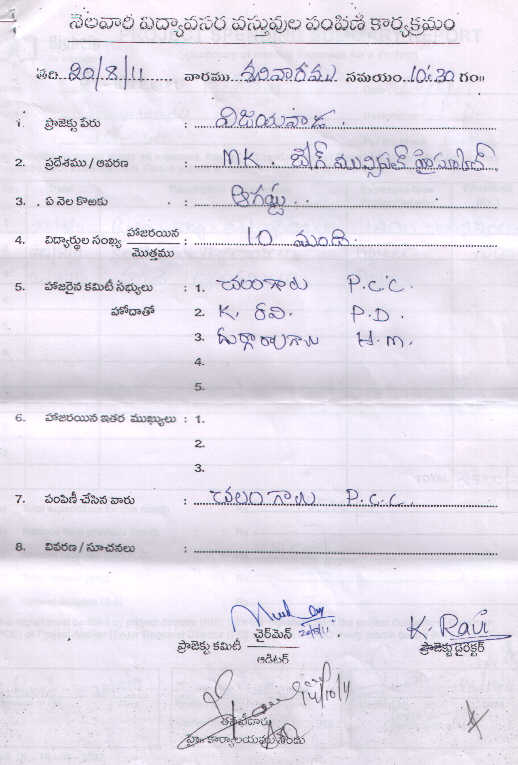 నెలవారి విద్యావసర వస్తువుల పంపిణీ కార్యక్రమం
తేది. 20/8/11 వారము శనివారము సమయం. 10:30 గం॥
1. ప్రాజెక్టు పేరు : విజయవాడ.
2. ప్రదేశము / ఆవరణ : MK. బేగ్ మున్సిపల్ హైస్కూల్
3. ఏ నెల కొఱకు : ఆగష్టు
4. విద్యార్థుల సంఖ్య హాజరయిన : 10 మంది.
మొత్తము
5. హాజరైన కమిటీ సభ్యులు : 1. చలంగారు P.C.C.
హోదాతో 2. K. రవి. P.D.
3. దుర్గారావుగారు H.M.
4.
5.
6. హాజరయిన ఇతర ముఖ్యులు : 1.
2.
3.
7. పంపిణీ చేసిన వారు : చలంగారు P.C.C.
8. వివరణ / సూచనలు :
20/8/11
K. Ravi
ప్రాజెక్టు కమిటీ చైర్‌మెన్ ప్రాజెక్టు డైరెక్టర్
ఆడిటర్
14/10/11